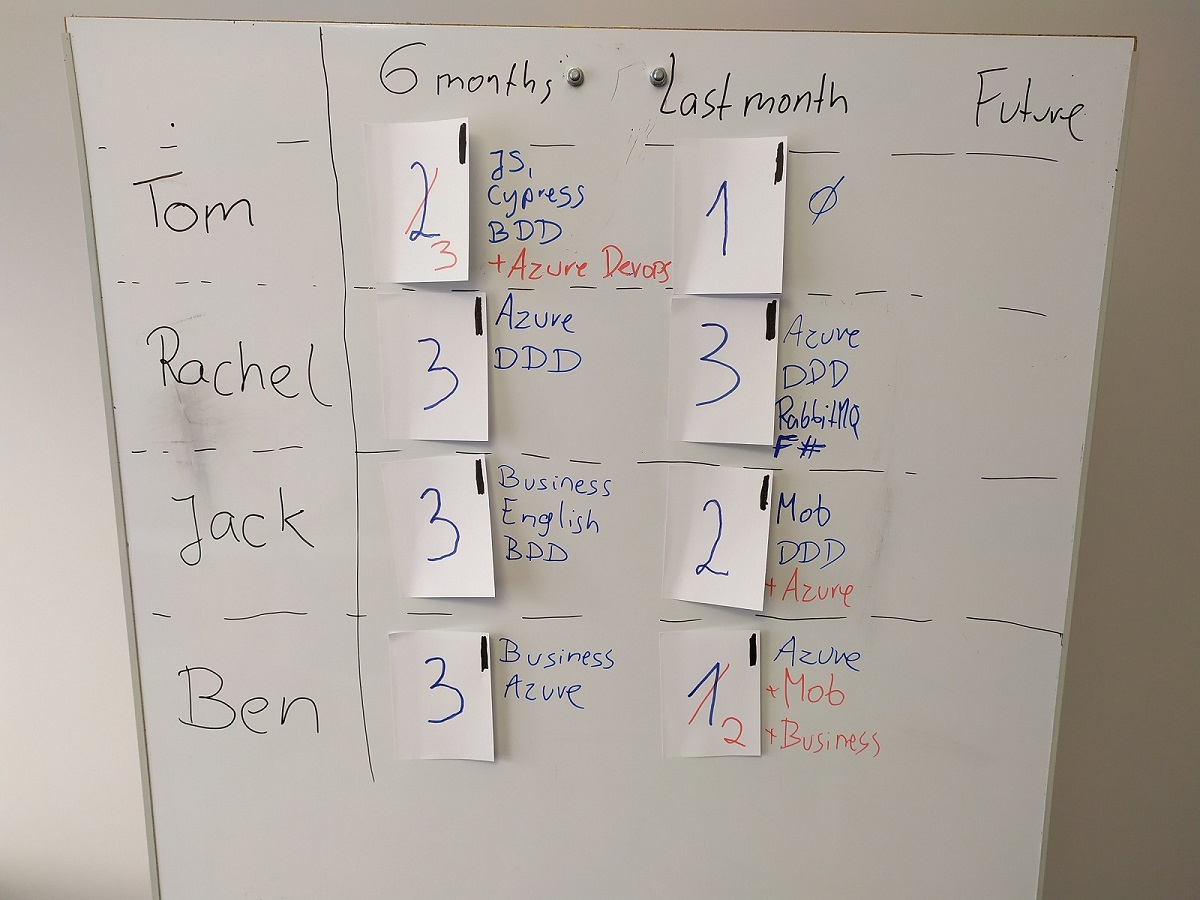 6 months Last month Future
Tom
2
3
JS,
Cypress
BDD
+Azure Devops
1
Ø
Rachel
3
Azure
DDD
3
Azure
DDD
RabbitMQ
F#
Jack
3
Business
English
BDD
2
Mob
DDD
+Azure
Ben
3
Business
Azure
1
2
Azure
+Mob
+Business